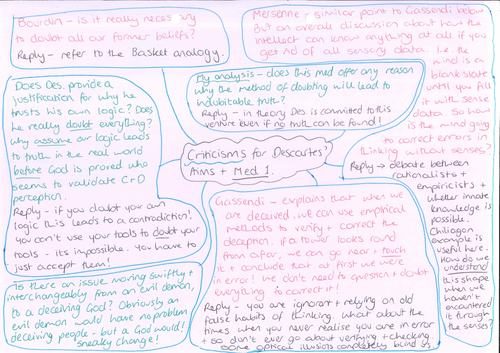 Bourdin - is it really necessary
to doubt all our former beliefs?
Reply - refer to the Basket analogy.
Mersenne - similar point to Gassendi below
but an overall discussion about how the
intellect can know anything at all if you
get rid of all sensory data. I.e. the
mind is a
blank slate
until you fill
it with sense
data. So how
is the mind going
to correct errors in
thinking without senses?
Reply → debate between
rationalists +
empiricists +
whether innate
knowledge is
possible.
Chiliagon
example is
useful here.
How do we
understand
this shape
when we
haven't en-
countered
it through
the senses?
My analysis - does this med offer any reason
why the method of doubting will lead to
indubitable truth?
Reply - in theory Des. is committed to this
venture even if no truth can be found!
Does Des. provide a
justification for why he
trusts his own logic? Does
he really doubt everything?
Why assume our logic leads
to truth in the real world
before God is proved who
seems to validate C+D
perception.
Reply - if you doubt your own
logic this leads to a contradiction!
You can't use your tools to doubt your
tools - its impossible. You have to
just accept them!
Criticisms for Descartes'
Aims + Med 1.
Gassendi - explains that when we
are deceived, we can use empirical
methods to verify + correct the
deception. If a tower looks round
from afar, we can go near + touch
it + conclude that at first we were
in error! We don't need to question + doubt
everything to correct it!
Reply - you are ignorant + relying on old
false habits of thinking. What about the
times when you never realise you are in error
+ so don't ever go about verifying + checking
some optical illusions completely blind us.
Is there an issue moving swiftly +
interchangeably from an evil demon,
to a deceiving God? Obviously an
evil demon would have no problem
deceiving people - but a God would!
sneaky change!